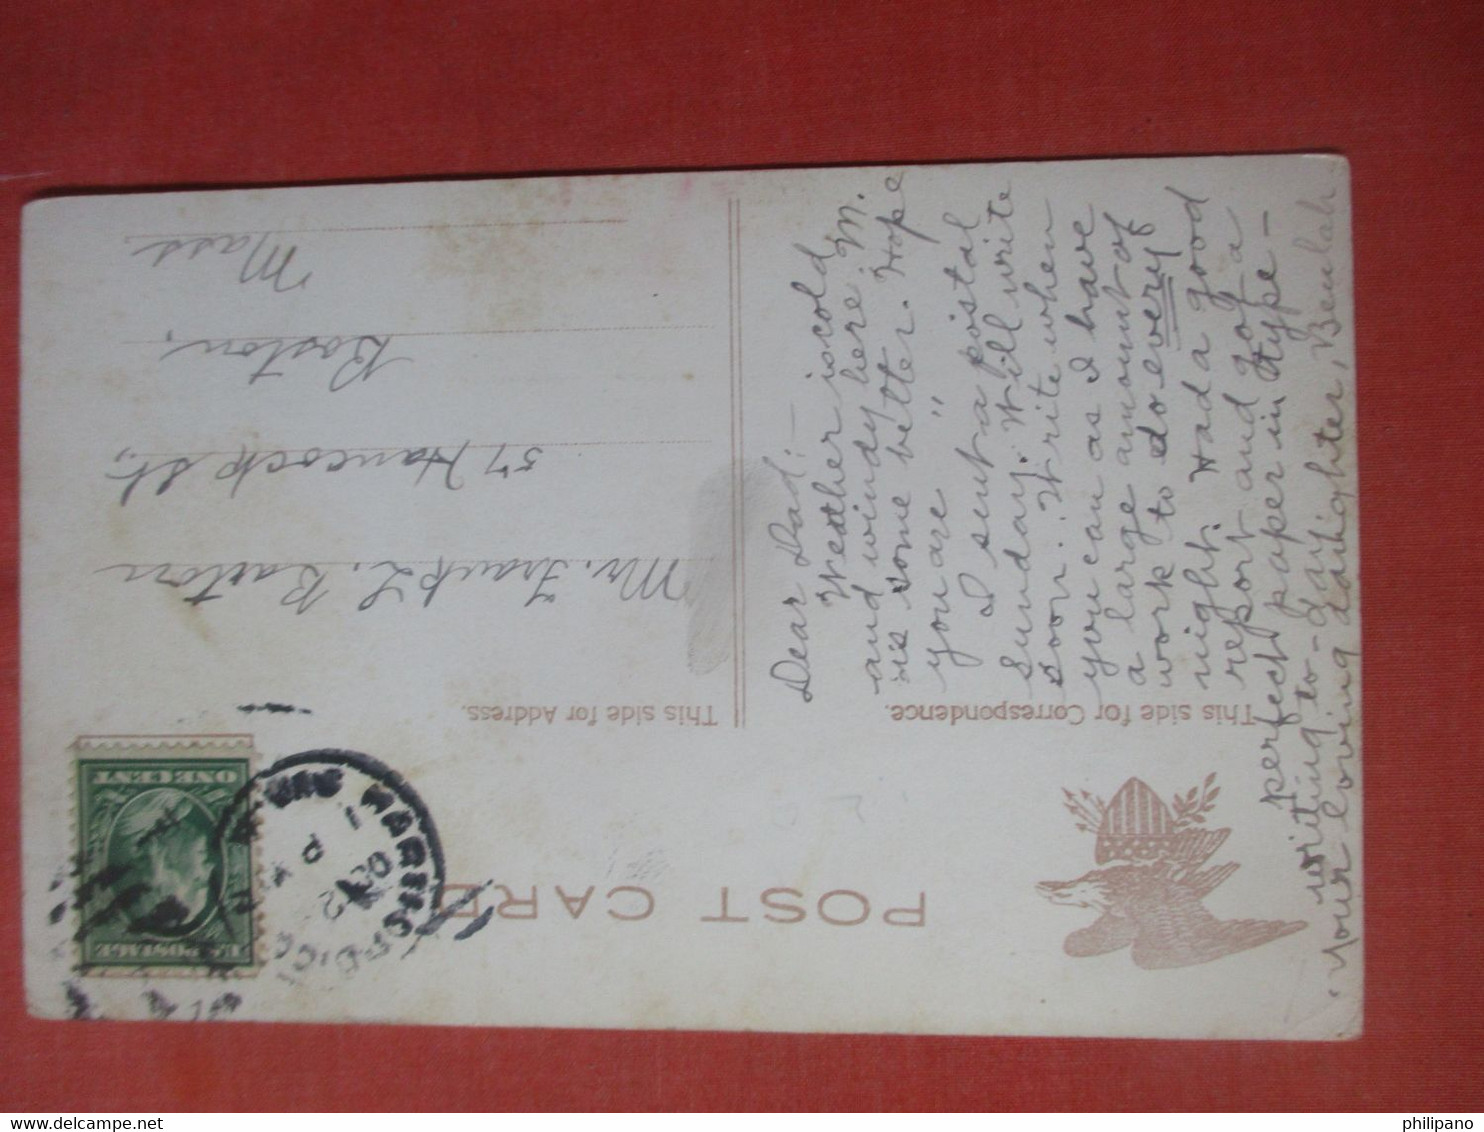 POST CARD
This side for Correspondence.
This side for Address.
Dear Dad: —
Weather is cold
and windy here. M.
is some better. Hope
you are "
I sent a postal
Sunday. Will write
soon. Write when
you can as I have
a large amount of
work to do every
night. Had a good
report and got a
perfect paper in type-
writing to-day.
Your loving daughter, Beulah
Mr. Frank L. Barton
57 Hancock St.,
Boston,
Mass.
U.S. POSTAGE
ONE CENT
1 P
philipano